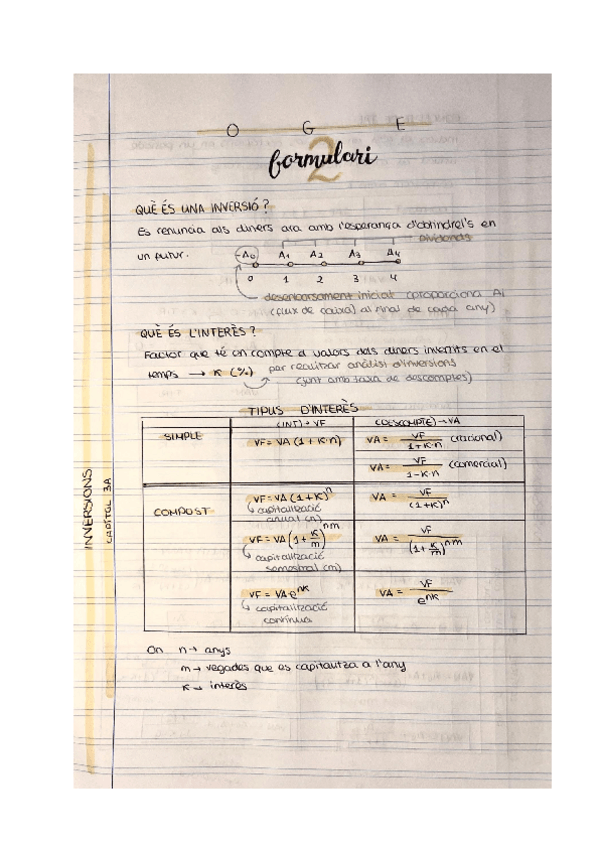 O G E
formulari 2
QUÈ ÉS UNA INVERSIÓ?
Es renuncia als diners ara amb l'esperança d'obtindrel's en
un futur.
-A0 A1 A2 A3 A4 Dividends
0 1 2 3 4
desemborsament inicial (proporciona Ai
(flux de caixa) al final de cada any)
QUÈ ÉS L'INTERÈS?
Factor que té en compte el valors dels diners invertits en el
temps → K (%) per realitzar anàlisi d'inversions
(junt amb taxa de descomptes)
TIPUS D'INTERÈS
(INT) → VF (DESCOMPTE) → VA
SIMPLE VF = VA (1 + K·n) VA = VF / (1+K·n) (racional)
VA = VF / (1-K·n) (comercial)
COMPOST VF = VA (1+K)^n VA = VF / (1+K)^n
capitalització
anual (n)
VF = VA (1 + K/m)^nm VA = VF / (1 + K/m)^nm
capitalització
semestral (m)
VF = VA e^nK VA = VF / e^nK
capitalització
contínua
On n → anys
m → vegades que es capitalitza a l'any
K → interès
INVERSIONS
CAPÍTOL 3A